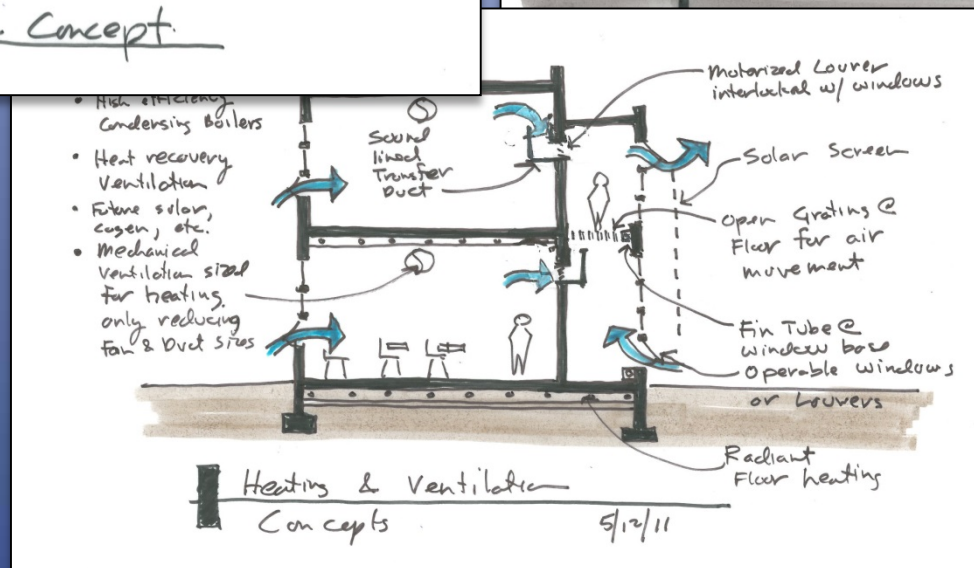 . Concept
• High efficiency
Condensing Boilers
• Heat recovery
Ventilation
• Future solar,
cogen, etc.
• Mechanical
Ventilation sized
for heating
only reducing
Fan & Duct sizes
Sound
lined
Transfer
Duct
Motorized Louver
interlocked w/ windows
Solar Screen
Open Grating @
Floor for air
movement
Fin Tube @
window base
Operable windows
or Louvers
Radiant
Floor heating
Heating & Ventilation
Concepts 5/12/11